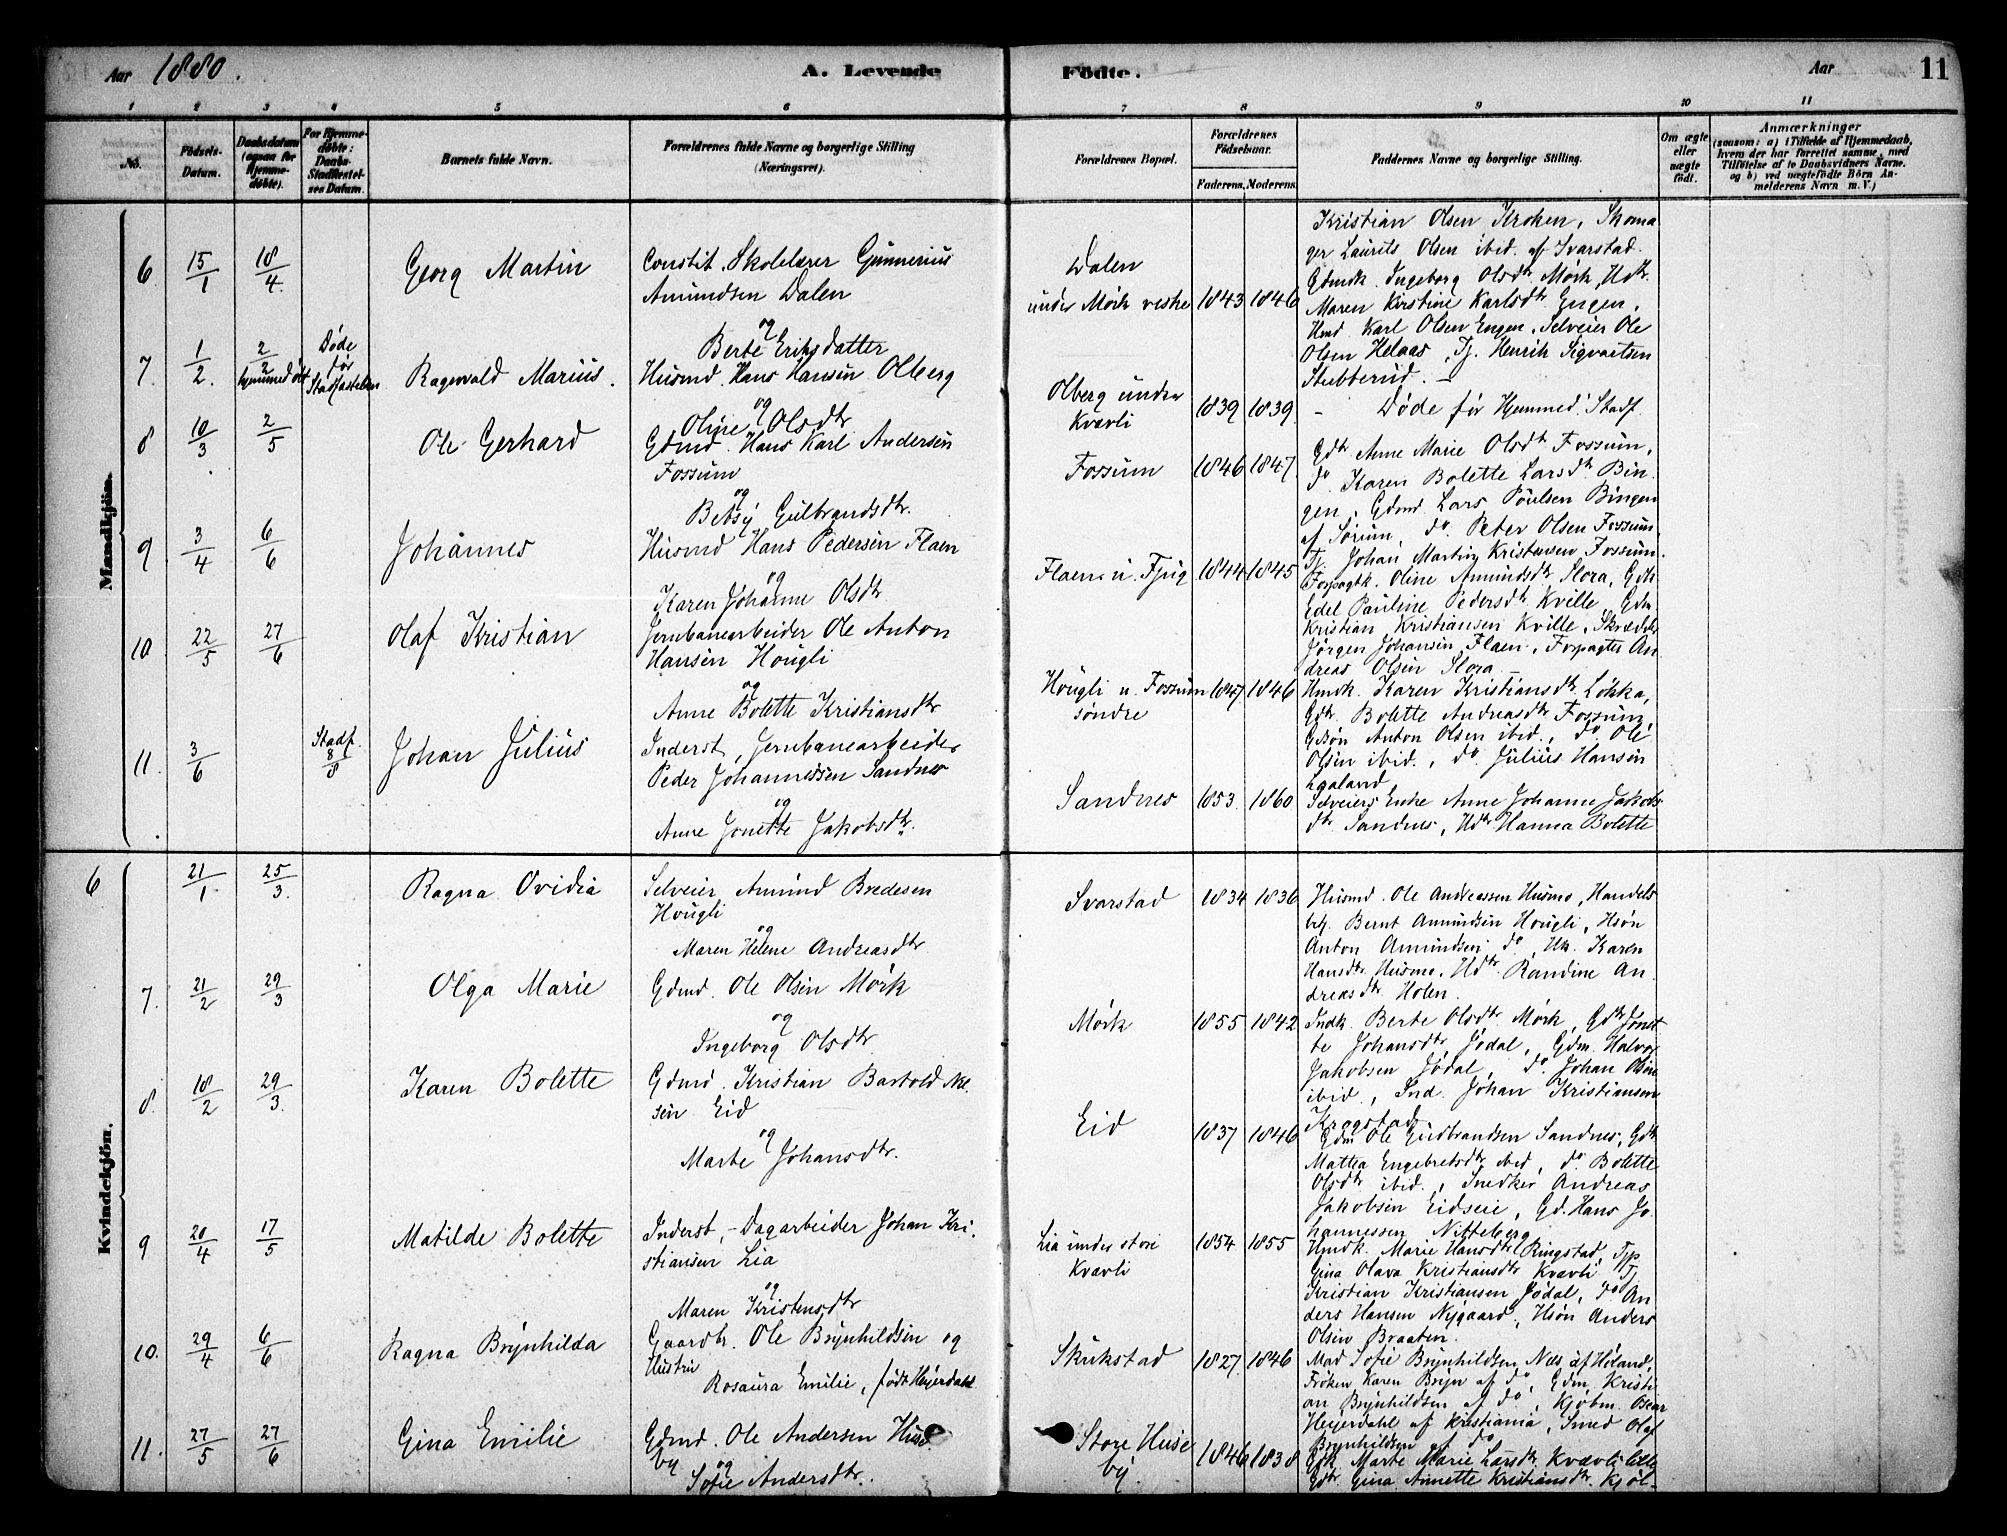 Aar 1880. A. Levende Födte. Aar 11
1 2 3 4 5 6 7 8 9 10 11
No. Födsels-Datum. Daabsdatum (ogsaa for Hjemme-döbte). For Hjemme-döbte: Daabs-Stadfæstel-ses Datum. Barnets fulde Navn. Forældrenes fulde Navne og borgerlige Stilling (Næringsvei). Forældrenes Bopæl. Forældrenes Födselsaar. Faderens. Moderens. Faddernes Navne og borgerlige Stilling. Om ægte eller uægte födt. Anmærkninger (saasom: a) i Tilfælde af Hjemmedaab, hvem der har forrettet samme, med Tilföielse af to Daabsvidners Navne, og b) ved uægtefödte Börn An-melderens Navn m. V.)
Mandkjön.
6. 15/1 18/4. Georg Martin
Constit. Skolelærer Gunnerius
Amundsen Dalen
og
Berte Eriksdatter
Dalen
under Mörk vestre 1843 1846
Kristian Olsen Kroken, Skoma
ger Laurits Olsen ibid. af Svarstad.
Gdmdk. Ingeborg Olsdtr Mörk, Udtr.
Maren Kirstine Karlsdtr Engen,
Hmd Karl Olsen Engen, Selveier Ole
Olsen Helaas, Tj. Henrik Sigvartsen
Stubberud. —
7. 1/2. 2/2 hjemmedöbt Døde før Stadfæstelsen Ragnvald Marius.
Husmd. Hans Hansen Olberg
og
Oline Olsdtr
Olberg under
Kvævli 1839 1839.
- Døde før Hjemmed. Stadf.
8 10/3 2/5 Ole Gerhard
Gdmd. Hans Karl Andersen
Fossum
og
Betsy Gulbrandsdtr.
Fossum 1846 1847.
Gdtr Anne Marie Olsdtr Fossum,
do Karen Bolette Larsdtr Bin
gen, Gdmd. Lars Poulsen Bingen
af Sörum, do. Peter Olsen Fossum,
Tj. Johan Martin Kristensen Fossum.
9 3/4 6/6 Johannes
Husmd Hans Pedersen Flaen
og
Karen Johanne Olsdtr.
Flaen u. Fjug 1844 1845
Forpagtk. Oline Amundsdtr Slora, Gdtr
Edel Pauline Pedersdtr Kville, Gdm.
Kristian Kristiansen Kville, Skrædder
Jørgen Johansen Flaen, Forpagter An
dreas Olsen Slora —
10 22/5 27/6 Olaf Kristian
Jernbanearbeider Ole Anton
Hansen Hougli
og
Anne Bolette Kristiansdtr
Hougli u. Fossum
søndre 1847 1846
Hmdk. Karen Kristiansdtr Løkka,
Gdtr. Bolette Andreasdtr Fossum,
Gdsøn Anton Olsen ibid., do Ole
Olsen ibid., do. Julius Hansen
Haaland
11. 3/6 Stadf. 8/8 Johan Julius
Inderst, Jernbanearbeider
Peder Johannessen Sandnes
og
Anne Jonette Jakobsdtr.
Sandnes 1853. 1860
Selveiers Enke Anne Johanne Jakobs
dtr Sandnes, Udtr Hanna Bolette
Kvindekjön.
6 21/1 25/3. Ragna Ovidia
Selveier Amund Bredesen
Hougli
og
Maren Helene Andreasdtr
Svarstad 1834 1836
Husmd. Ole Andreassen Husmo, Handels
btj. Bernt Amundsen Hougli, Hsøn
Anton Amundsen do, Hk. Karen
Hansdtr. Husmo, Udtr. Randine An
dreasdtr. Holen.
7. 21/2 29/3 Olga Marie
Gdmd. Ole Olsen Mörk
og
Ingeborg Olsdtr
Mörk 1855 1842
Indk. Berte Olsdtr. Mørk, Gdtr Jonet
te Johansdtr Jødal, Gdm. Halvor
Jakobsen Jødal, do. Johan Olsen
ibid., Ind. Johan Kristiansen
Krogstad
8. 18/2 29/3. Karen Bolette
Gdmd. Kristian Bartold Nil
sen Eid
og
Marte Johansdtr.
Eid 1837 1846
Gdm Ole Gudbrandsen Sandnes, Gdtr
Mattea Engebretsdtr ibid, do. Bolette
Olsdtr ibid., Snedker Andreas
Jakobsen Eidseie, Gd. Hans Jo
hannessen Nitteberg
9 20/4 17/5 Matilde Bolette
Inderst, - Dagarbeider Johan Kri
stiansen Lia
og
Maren Kristensdtr
Lia under store
Kvævli 1854 1855
Hmdk. Marie Hansdtr Ringstad, Typ
Gina Olava Kristiansdtr Kvævli Tj.
Kristian Kristiansen Jødal, do An
ders Hansen Nygaard, Hsøn Anders
Olsen Braaten.
10. 29/4 6/6 Ragna Brynhilda
Gaardbr. Ole Brynhildsen og
Hustru
Rosaura Emilie, født Heyerdahl
Skukstad 1827. 1846
Mad Sofie Brynhildsen Næs af Høland,
Frøken Karen Bryn af do, Gdm. Kristi
an Brynhildsen af do, Kjøbm. Oscar
Heyerdahl af Kristiania, Smed Olaf
Brynhildsen af do
11. 27/5 27/6 Gina Emilie
Gdmd. Ole Andersen Huse
by og
Sofie Andersdtr.
Store Huse
by. 1846 1838
Gdk Marte Marie Larsdtr. Kvævli lille
Gdtr. Gina Annette Kristiansdtr. Kjøl-